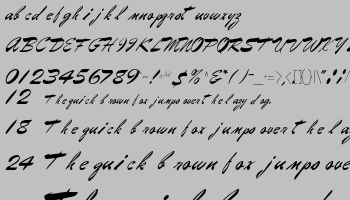 ab cd ef gh i j k l mnopqrst uvwxyz
ABCDEFGHIJKLMNOPQRSTUVWXY
0123456789
12 The quick brown fox jumps over the lazy dog.
18 The quick brown fox jumps over the la
24 The quick brown fox jumps ove